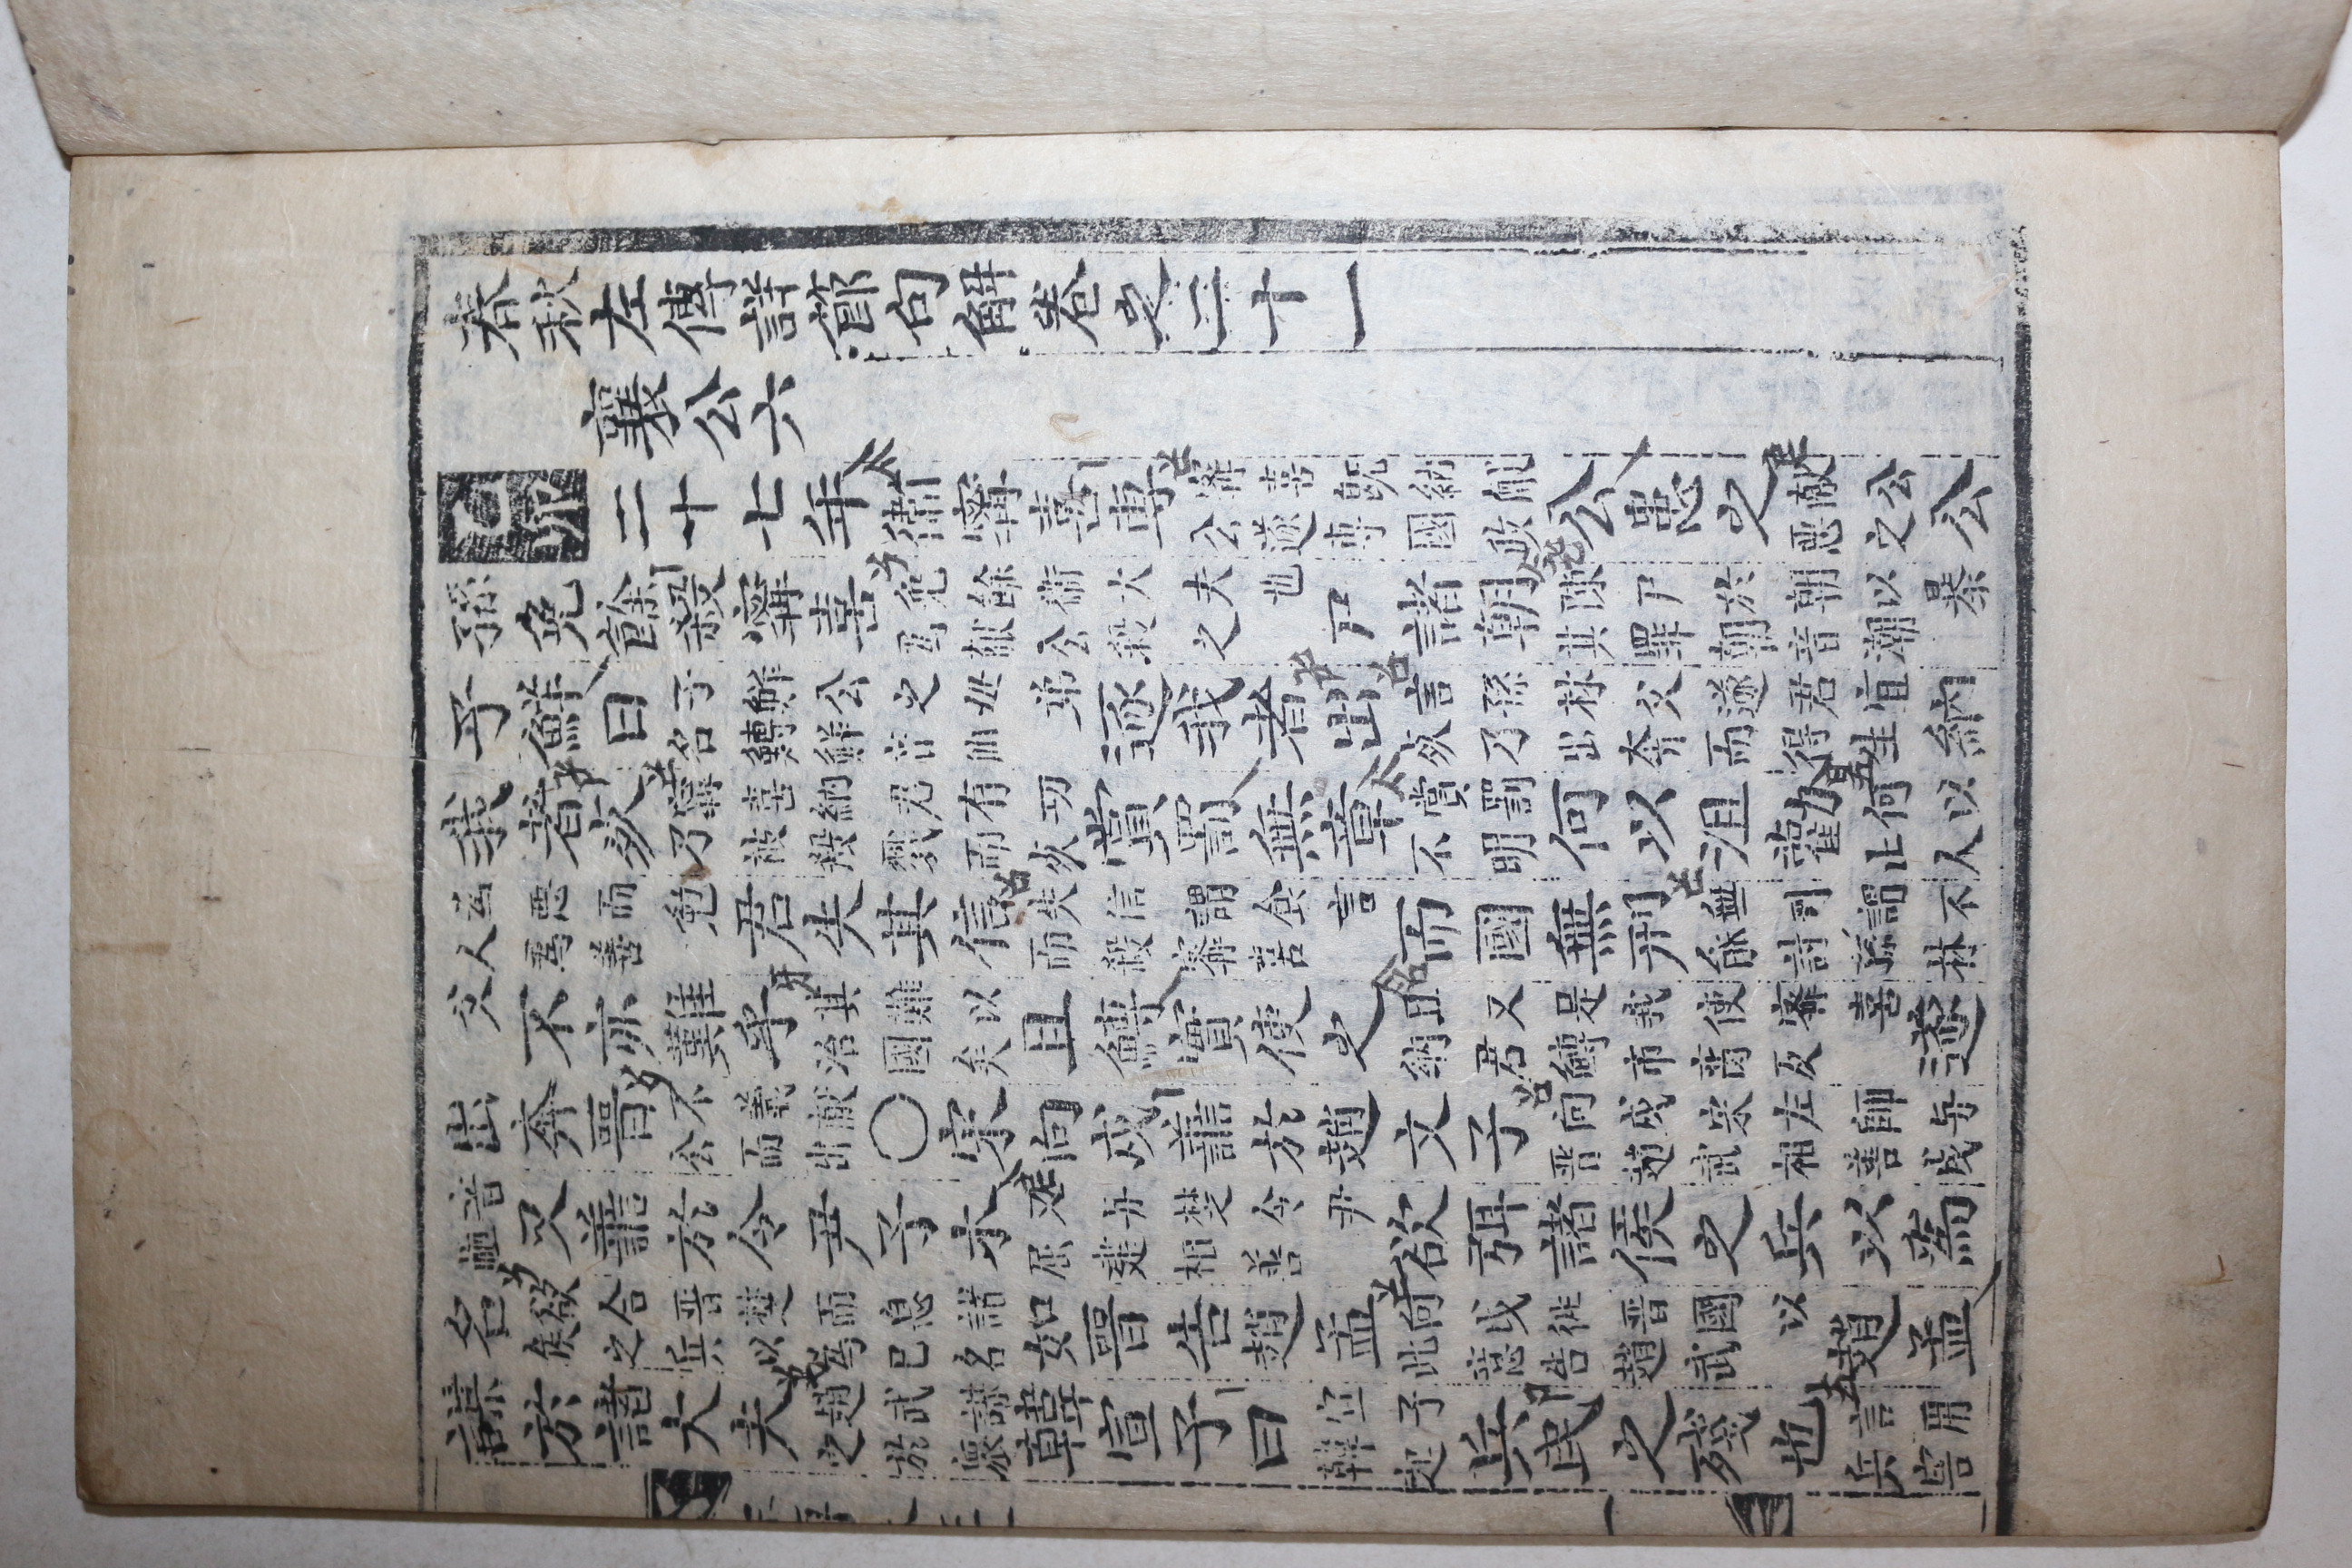 春秋左傳詳節句解卷之二十一
襄公六
乙卯二十七年衛寗喜專寗喜既納献公遂專國政公患之献公惡之公
孫免餘殺寗喜免餘衛大夫也爲献公殺之尸諸朝陳尸於朝以暴其罪朝音潮
子鮮曰子鮮公之母弟名鱄鮮音仙逐我者出言孫林父逐君宜死乃出奔而得生納
我者死寗喜納君有功乃被殺戮而死賞罰無章賞罰不明何以沮勸何以止人
爲惡而勉人爲善君失其信失信謂食言而殺寗喜而國無刑無刑謂不能討孫林
父不亦難乎其難以治國矣且鱄實使之且又是我使寗喜納君鱄市臠反遂
出奔晋不義献公而出〇宋向戌善於趙文子向戌宋左師与晋趙武相善戌
音恤又善於令尹子木又与楚令尹屈建相善欲弭諸侯之兵以爲
名欲合晋楚而息諸侯之兵以爲己名如晋告趙孟向戌徃晋國以此意告趙武趙孟
謀於諸大夫趙武謀之於衆韓宣子曰宣子韓起兵民之殘也言用兵害